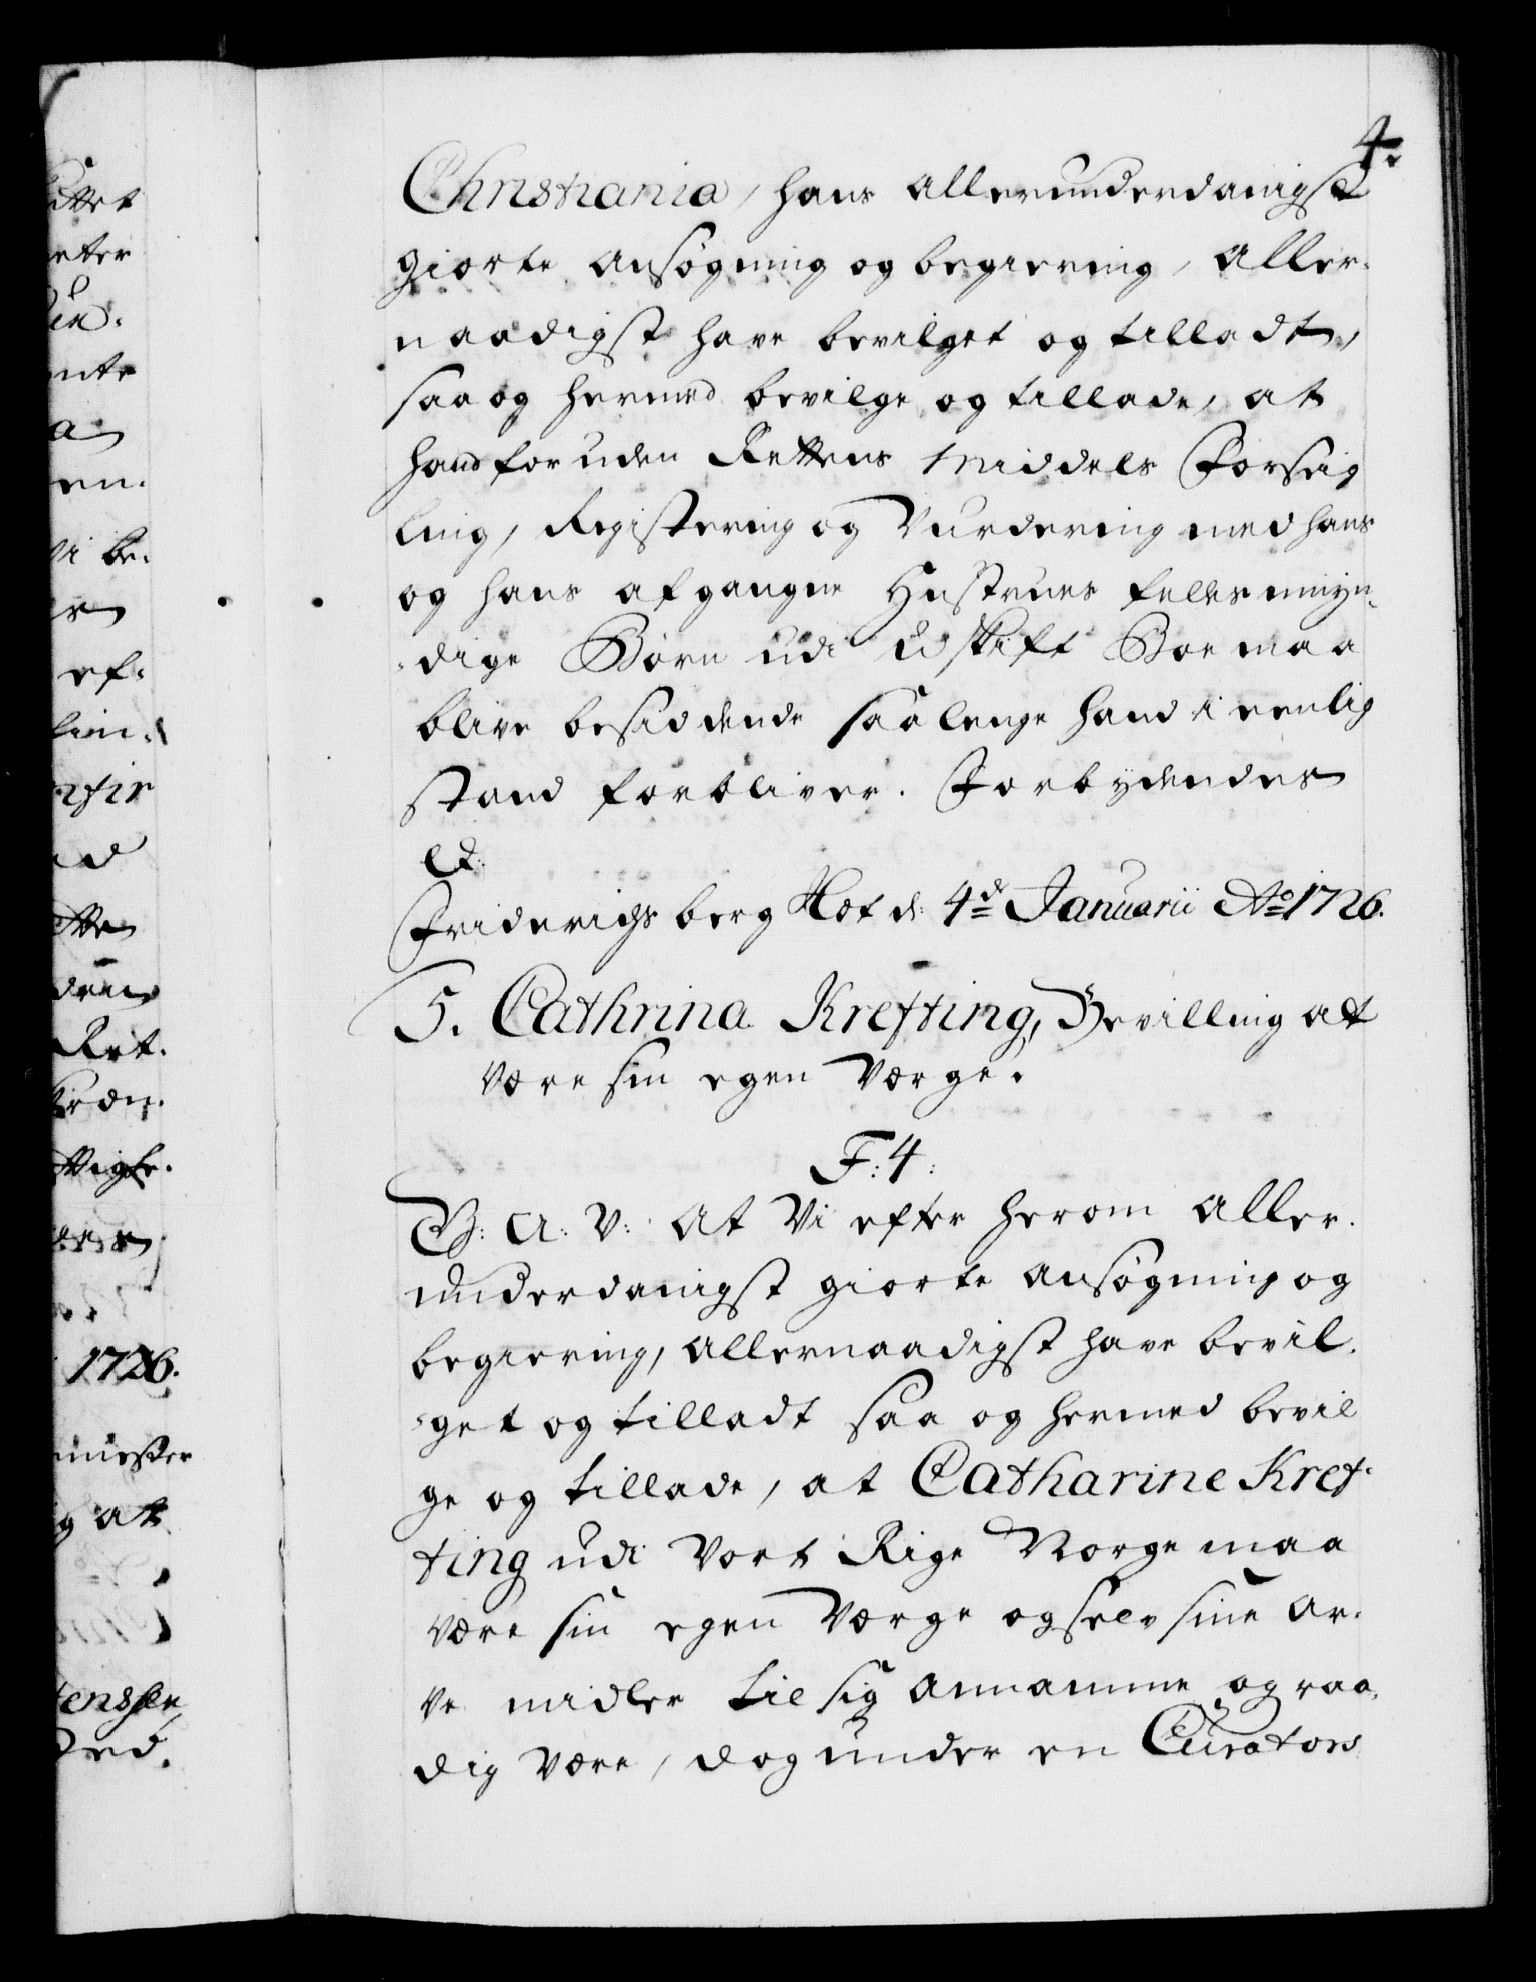 4.
Christiania, hans allerunderdanigst
giorte ansøgning og begiering, aller-
naadigst have bevilget og tilladt,
saa og hermed bevilge og tillade, at
hand foruden Rettens Middels Forseig
ling, Registering og Vurdering med hans
og hans afgangne Hustrues felles umyn-
dige Børn udi uskift Boe maa
blive besiddende saa lenge hand i eenlig
stand forbliver. Forbydendes
etc:
Friderichsberg Slot d: 4de Januarii Ao 1726.
5. Cathrina Krefting, Bevilling at
være sin egen Værge.
F: 4:
G: A: V: at Vi efter herom aller-
underdanigst giorte ansøgning og
begiering, allernaadigst have bevil-
get og tilladt saa og hermed bevil
ge og tillade, at Catharine Kref-
ting udi Vort Rige Norge maa
være sin egen Værge og selv sine Ar-
ve midler til sig annamme og raa-
dig være, dog under en Curators
ttet
nte
en.
Vi be-
ef-
Ret.
1726.
mester
g at